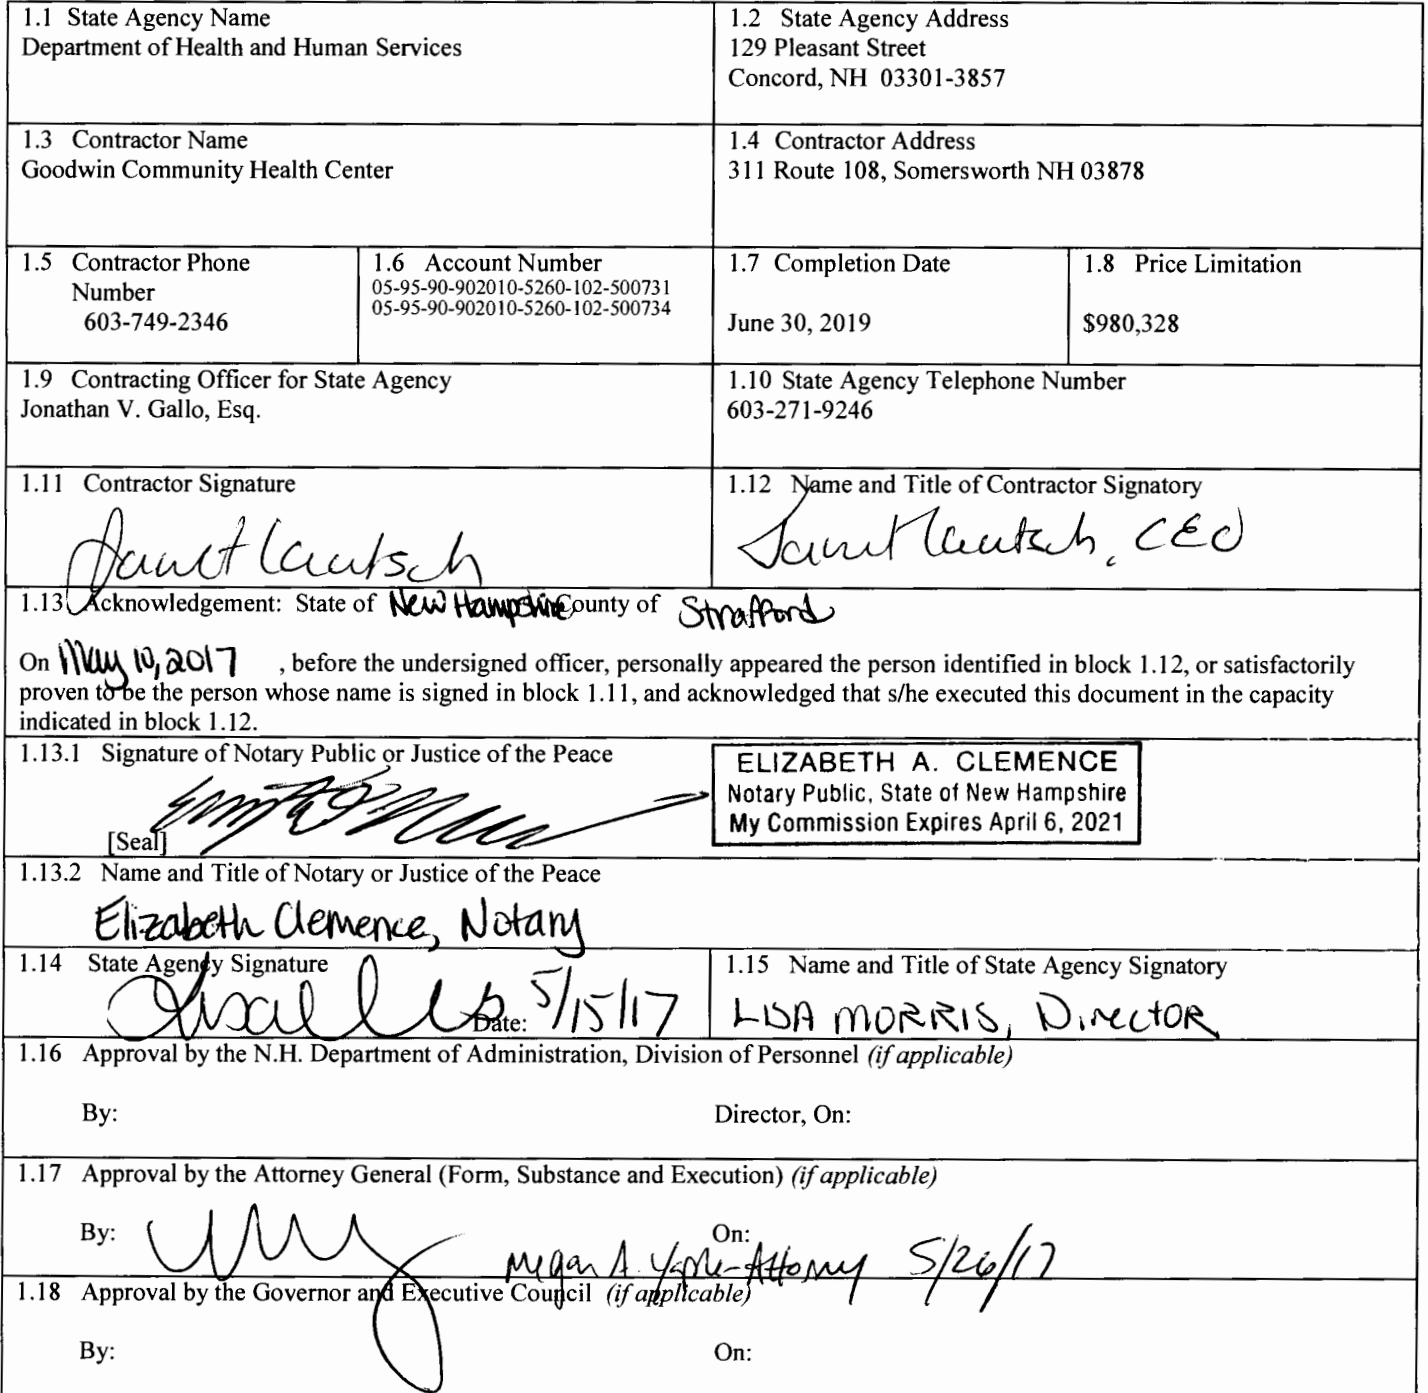 1.1 State Agency Name
Department of Health and Human Services
1.2 State Agency Address
129 Pleasant Street
Concord, NH 03301-3857
1.3 Contractor Name
Goodwin Community Health Center
1.4 Contractor Address
311 Route 108, Somersworth NH 03878
1.5 Contractor Phone
Number
603-749-2346
1.6 Account Number
05-95-90-902010-5260-102-500731
05-95-90-902010-5260-102-500734
1.7 Completion Date
June 30, 2019
1.8 Price Limitation
$980,328
1.9 Contracting Officer for State Agency
Jonathan V. Gallo, Esq.
1.10 State Agency Telephone Number
603-271-9246
1.11 Contractor Signature
1.12 Name and Title of Contractor Signatory
Janet Laatsch, CEO
1.13 Acknowledgement: State of New Hampshire County of Strafford
On May 10, 2017 , before the undersigned officer, personally appeared the person identified in block 1.12, or satisfactorily
proven to be the person whose name is signed in block 1.11, and acknowledged that s/he executed this document in the capacity
indicated in block 1.12.
1.13.1 Signature of Notary Public or Justice of the Peace
[Seal]
ELIZABETH A. CLEMENCE
Notary Public, State of New Hampshire
My Commission Expires April 6, 2021
1.13.2 Name and Title of Notary or Justice of the Peace
Elizabeth Clemence, Notary
1.14 State Agency Signature
Date: 5/15/17
1.15 Name and Title of State Agency Signatory
LISA MORRIS, Director
1.16 Approval by the N.H. Department of Administration, Division of Personnel (if applicable)
By: Director, On:
1.17 Approval by the Attorney General (Form, Substance and Execution) (if applicable)
By: On:
Megan A. Attorney 5/26/17
1.18 Approval by the Governor and Executive Council (if applicable)
By: On: